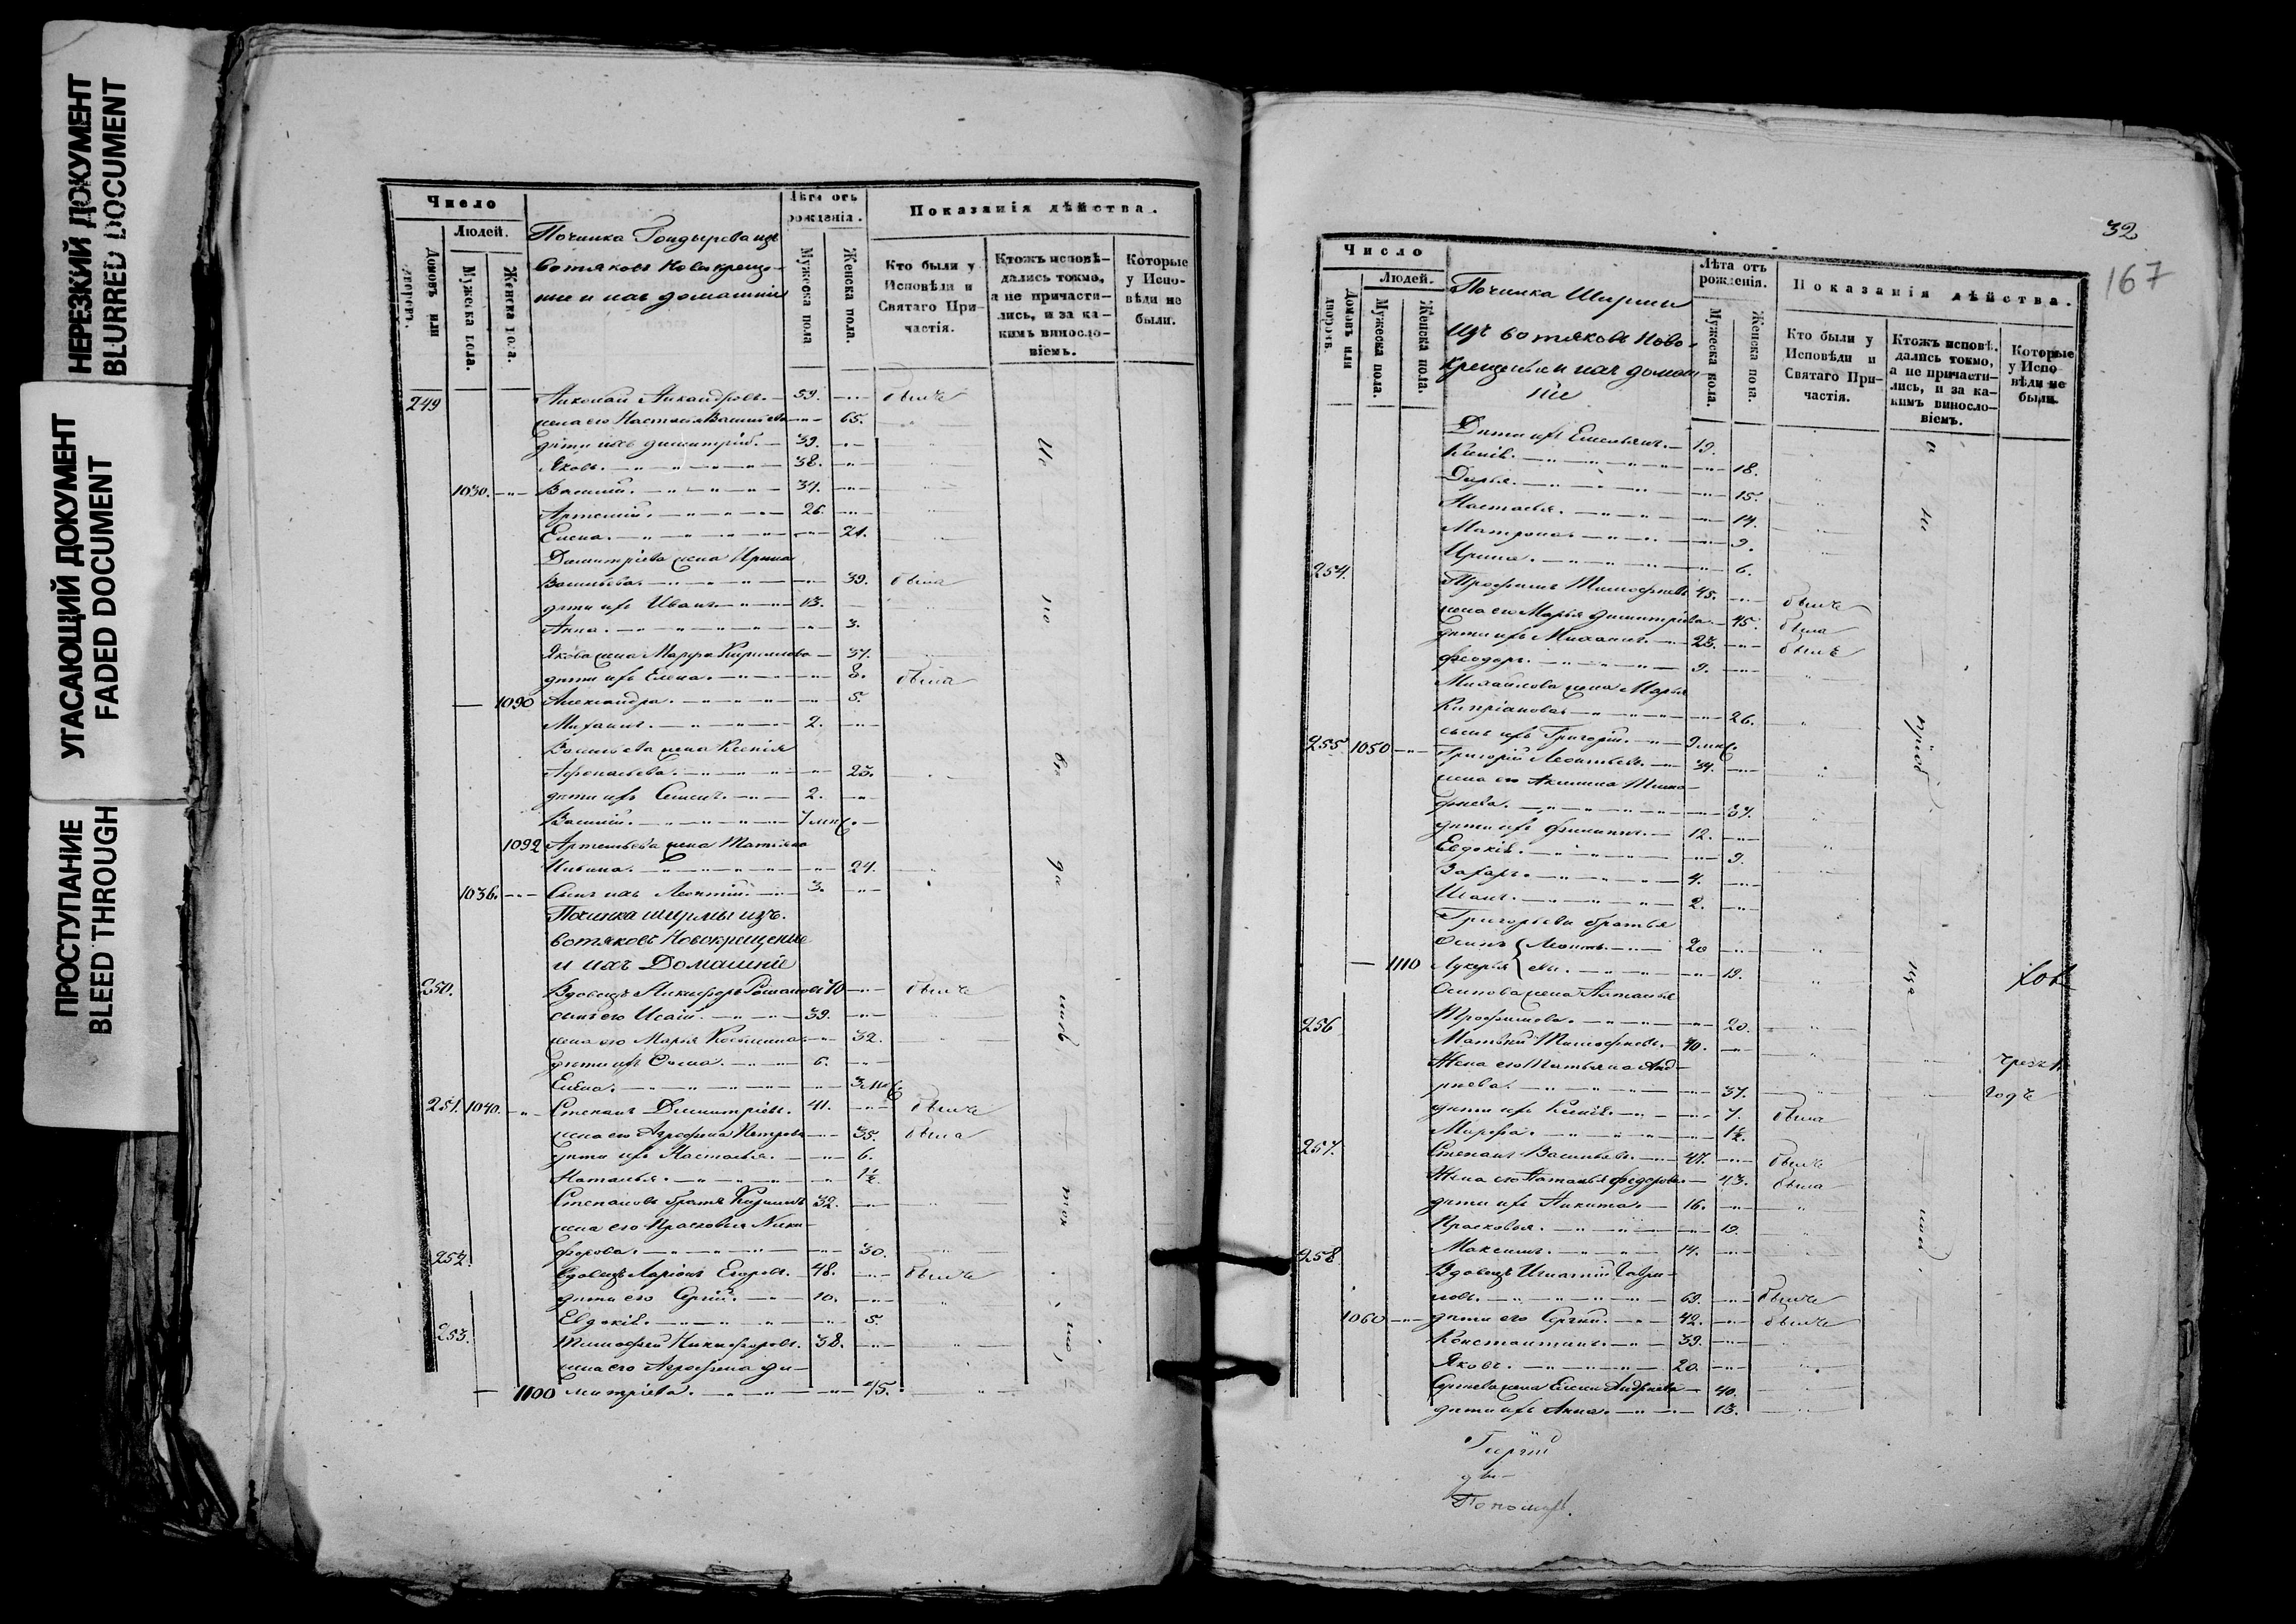 НЕРЕЗКИЙ ДОКУМЕНТ
BLURRED DOCUMENT
УГАСАЮЩИЙ ДОКУМЕНТ
FADED DOCUMENT
ПРОСТУПАНИЕ
BLEED THROUGH
Число
Людей.
Домовъ или
дворовъ.
Мужеска пола.
Женска пола.
Починка Гондырева изъ
вотяковъ Новокреще-
ные и ихъ домашніе
Лѣта отъ
рожденія.
Мужеска пола
Женска пола.
Показанія дѣйства.
Кто были у
Исповѣди и
Святаго При-
частія.
Ктожъ исповѣ-
дались токмо,
а не причасти-
лись, и за ка-
кимъ виносло-
віемъ.
Которые
у Испо-
вѣди не
были.
249 Николай Никандровъ. 59. былъ
жена его Настасья Васильева 65.
дѣти ихъ Димитрій. 39.
Яковъ. 38.
1030. Василій. 34.
Артемій. 26.
Елена. 21.
Димитріева жена Ирина
Васильева. 39. была
дѣти ихъ Иванъ 13.
Анна. 3.
Якова жена Марфа Кириллова 37.
дѣти ихъ Елена. 8. была
1090 Александра. 5.
Михаилъ. 2.
Васильева жена Ксенія
Афонасьева. 23.
дѣти ихъ Семенъ. 2.
Василій. 7 мѣс.
1092 Артемьева жена Татьяна
24.
1036. Сынъ ихъ Леонтій. 3.
Починка ширмы изъ
вотяковъ Новокрещеные
и ихъ Домашніе
250. Вдовецъ Никифоръ Романовъ 70 былъ
сынъ его Исаій. 39.
жена его Марья 32.
дѣти ихъ Фома. 6.
Елена. 3 мѣс.
251. 1040. Степанъ Димитріевъ. 41. былъ
жена его Агрофена Петрова 35. была
дѣти ихъ Настасья. 6.
Наталья. 1½
Степановъ братъ Кирилъ 32.
жена его Прасковья Ники-
форова. 30.
252. Вдовецъ Ларіонъ Егоровъ. 48. былъ
дѣти его Сергій. 10.
Евдокія. 5.
253. Тимофей Никифоровъ. 38.
жена его Агрофена Ди-
1100 митріева. 45.
32
167
Число
Людей.
Домовъ или
дворовъ.
Мужеска пола.
Женска пола.
Починка Ширмы
изъ вотяковъ Ново-
крещеные и ихъ домаш-
ніе
Лѣта отъ
рожденія.
Мужеска пола.
Женска пола.
Показанія дѣйства.
Кто были у
Исповѣди и
Святаго При-
частія.
Ктожъ исповѣ.
дались токмо,
а не причасти-
лись, и за ка-
кимъ виносло-
віемъ.
Которые
у Испо
вѣди не
были.
Дѣти ихъ Емельянъ. 19.
Ксенія. 18.
Дарья. 15.
Настасья. 14.
Матрона. 9.
Ирина. 6.
254. Трофимъ Тимофеевъ 45. былъ
жена его Марья Димитріева. 45. была
дѣти ихъ Михаилъ. 23. былъ
Феодоръ. 9.
Михайлова жена Марья
Кипріанова 26.
сынъ ихъ Григорій. 9 мѣс.
255. 1050 Григорій Леонтьевъ. 34.
жена его Акилина Тимо-
феева. 37.
дѣти ихъ Филиппъ. 12.
Евдокія. 9.
Захаръ. 4.
Иванъ. 2.
Григорьевы братья
Осипъ 20
1110 Лукерья 19.
Осипова жена Наталья
Трофимова. 20.
256 Матвѣй Тимофеевъ. 40.
Жена его Татьяна Анд-
реева. 37.
дѣти ихъ Ксенія. 7. была
Марфа. 1½.
257. Степанъ Васильевъ. 47. былъ
Жена его Наталья Федорова 43. была
дѣти ихъ Никита. 16.
Прасковья. 19.
Максимъ. 14.
258 Вдовецъ Игнатій Гаври-
ловъ. 69. былъ
1060 дѣти его Сергій. 42. былъ
Константинъ. 39.
Яковъ. 20.
Сергіева жена Елена Андреева 40.
дѣти ихъ Анна. 13.
Пономарь.